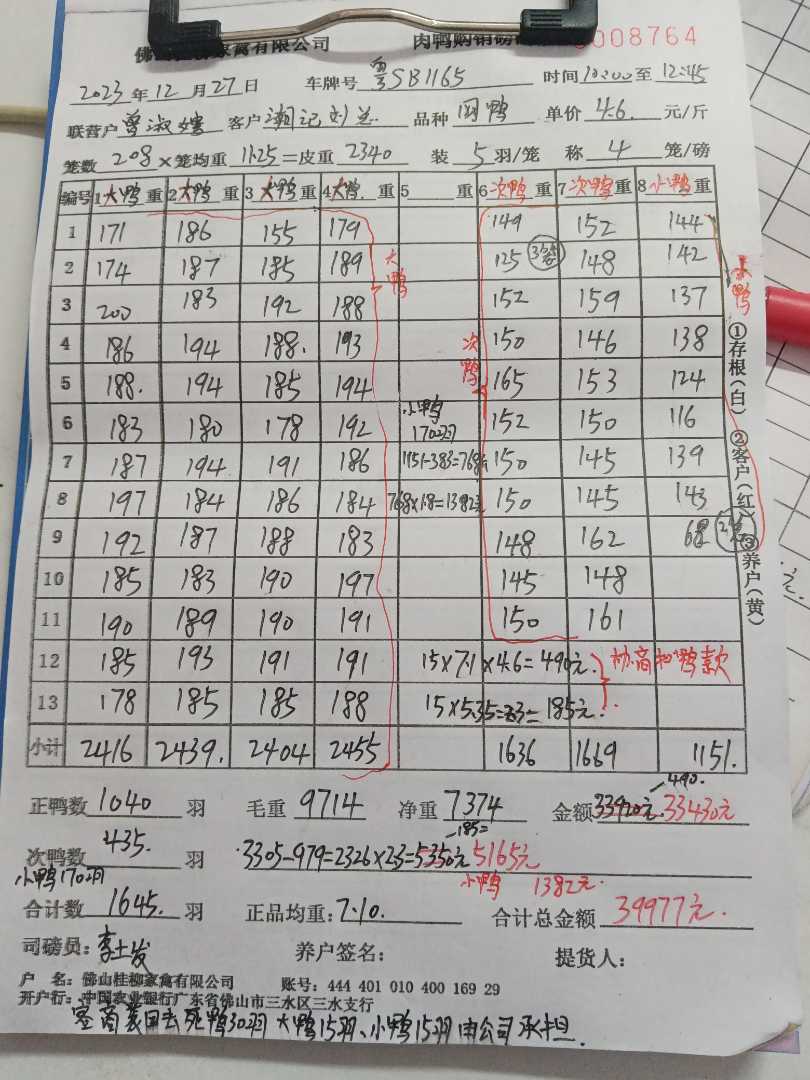 家禽有限公司 肉鸭购销磅 0008764
2023年12月27日 车牌号 粤SB1165 时间10:00至12:45
联营户 客户 湘记刘总 品种 肉鸭 单价 4.6 元/斤
笼数 208 × 笼均重 11.25 = 皮重 2340 装 5 羽/笼 称 4 笼/磅
编号 1大鸭重 2大鸭重 3大鸭重 4大鸭重 5 重 6次鸭重 7次鸭重 8小鸭重
1 171 186 155 179 149 152 144
2 174 187 185 189 大鸭 125 148 142 小鸭
3 200 183 192 188 152 159 137
4 186 194 188. 193 次鸭 150 146 138
5 188. 194 185 194 165 153 124
6 183 180 178 192 小鸭170羽 152 150 116
7 187 194 191 186 1151-383=768斤 150 145 139
8 197 184 186 184 768×1.8=1382元 150 145 143
9 192 187 188 183 148 162 68
10 185 183 190 197 145 148
11 190 189 190 191 150 161
12 185 193 191 191 15×7.1×4.6=490元 协商 鸭款
13 178 185 185 188 15×5.35=185元.
小计 2416 2439. 2404 2455 1636 1669 1151.
①存根(白) ②客户(红) ③养户(黄)
-490.
正鸭数 1040 羽 毛重 9714 净重 7374 金额 33920元. 33430元
-185=
次鸭数 435. 羽 3305-979=2326×2.3=5350元 5165元
小鸭170羽 小鸭 1382元.
合计数 1645. 羽 正品均重: 7.10. 合计总金额 39977元.
司磅员: 李土发 养户签名: 提货人:
户 名: 佛山桂柳家禽有限公司 账号: 444 401 010 400 169 29
开户行: 中国农业银行广东省佛山市三水区三水支行
回去死鸭30羽 大鸭15羽、小鸭15羽 由公司承担.